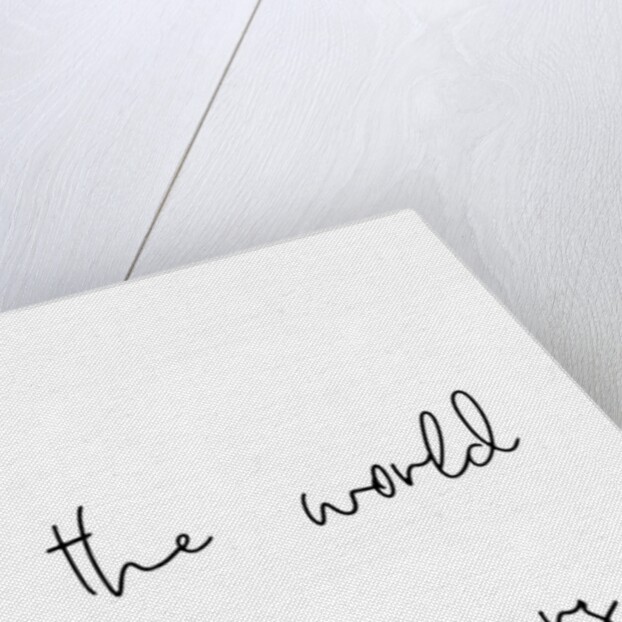 the world